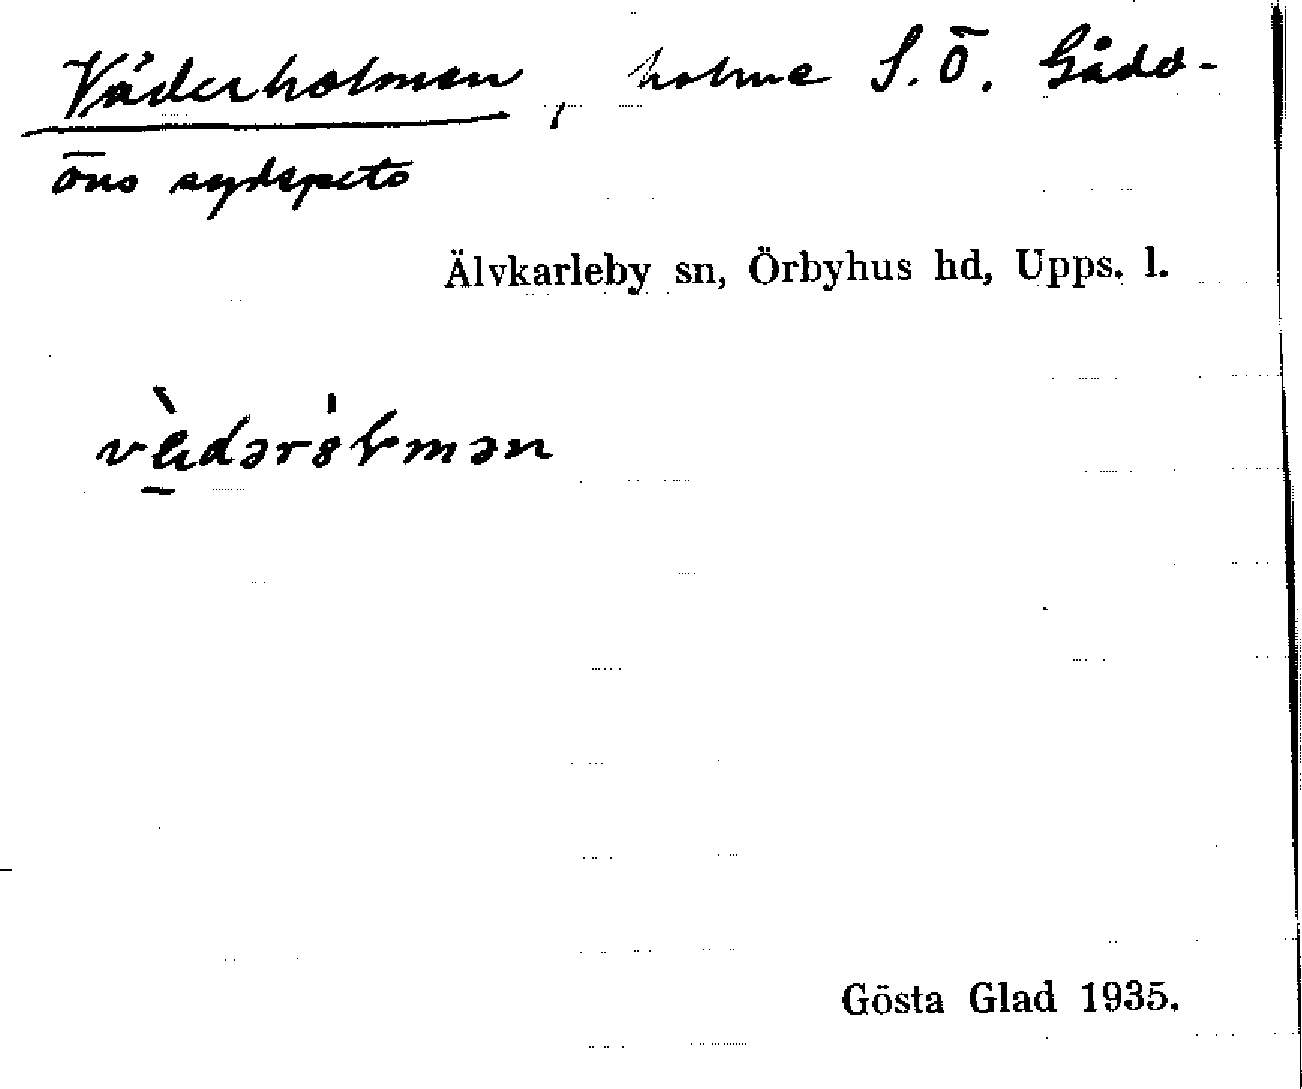 Väderholmen, holme S.Ö. Gårds-
öns sydspets
Älvkarleby sn, Örbyhus hd, Upps. l.
Gösta Glad 1935.